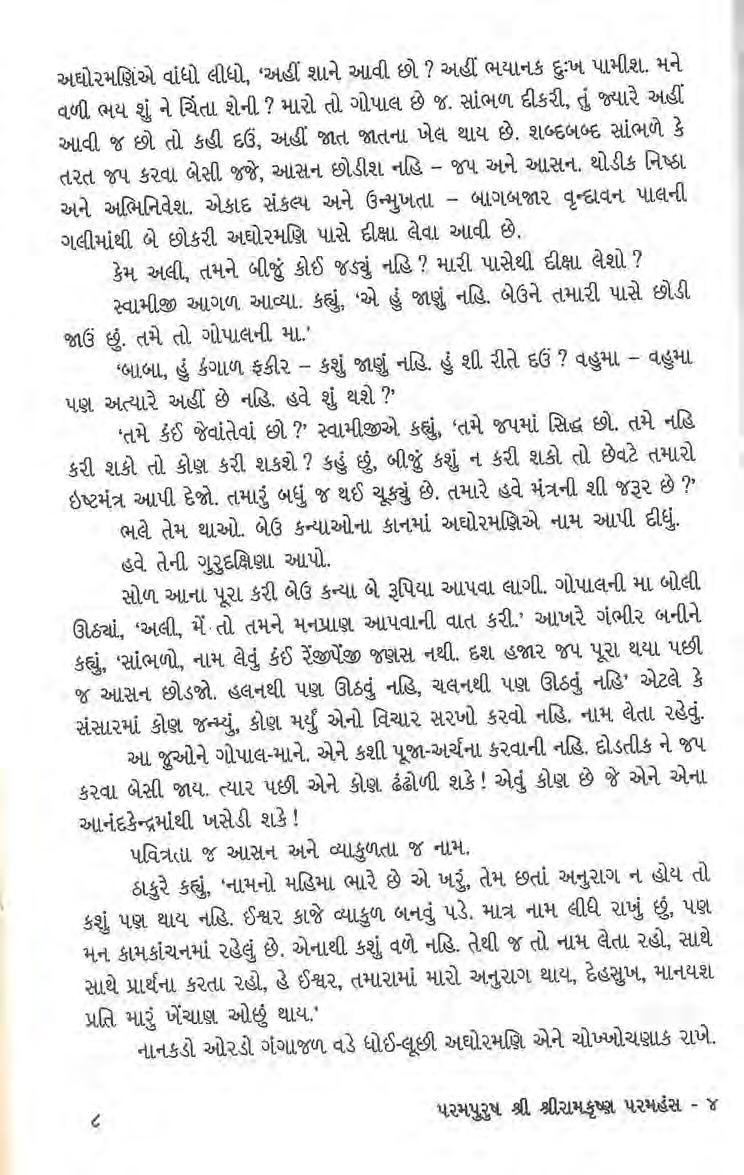 અઘોરમણિએ વાંધો લીધો, ‘અહીં શાને આવી છો ? અહીં ભયાનક દુઃખ પામીશ. મને
વળી ભય શું ને ચિંતા શેની ? મારો તો ગોપાલ છે જ. સાંભળ દીકરી, તું જ્યારે અહીં
આવી જ છો તો કહી દઉં, અહીં જાત જાતના ખેલ થાય છે. શબ્દબબ્દ સાંભળે કે
તરત જપ કરવા બેસી જજે, આસન છોડીશ નહિ – જપ અને આસન. થોડીક નિષ્ઠા
અને અભિનિવેશ. એકાદ સંકલ્પ અને ઉન્મુખતા – બાગબજાર વૃન્દાવન પાલની
ગલીમાંથી બે છોકરી અઘોરમણિ પાસે દીક્ષા લેવા આવી છે.
કેમ અલી, તમને બીજું કોઈ જડ્યું નહિ ? મારી પાસેથી દીક્ષા લેશો ?
સ્વામીજી આગળ આવ્યા. કહ્યું, ‘એ હું જાણું નહિ. બેઉને તમારી પાસે છોડી
જાઉં છું. તમે તો ગોપાલની મા.’
‘બાબા, હું કંગાળ ફકીર – કશું જાણું નહિ. હું શી રીતે દઉં ? વહુમા – વહુમા
પણ અત્યારે અહીં છે નહિ. હવે શું થશે ?’
‘તમે કંઈ જેવાંતેવાં છો ?’ સ્વામીજીએ કહ્યું, ‘તમે જપમાં સિદ્ધ છો. તમે નહિ
કરી શકો તો કોણ કરી શકશે ? કહું છું, બીજું કશું ન કરી શકો તો છેવટે તમારો
ઇષ્ટમંત્ર આપી દેજો. તમારું બધું જ થઈ ચૂક્યું છે. તમારે હવે મંત્રની શી જરૂર છે ?’
ભલે તેમ થાઓ. બેઉ કન્યાઓના કાનમાં અઘોરમણિએ નામ આપી દીધું.
હવે તેની ગુરુદક્ષિણા આપો.
સોળ આના પૂરા કરી બેઉ કન્યા બે રૂપિયા આપવા લાગી. ગોપાલની મા બોલી
ઊઠ્યાં, ‘અલી, મેં તો તમને મનપ્રાણ આપવાની વાત કરી.’ આખરે ગંભીર બનીને
કહ્યું, ‘સાંભળો, નામ લેવું કંઈ રેંજીપેંજી જણસ નથી. દશ હજાર જપ પૂરા થયા પછી
જ આસન છોડજો. હલનથી પણ ઊઠવું નહિ, ચલનથી પણ ઊઠવું નહિ’ એટલે કે
સંસારમાં કોણ જન્મ્યું, કોણ મર્યું એનો વિચાર સરખો કરવો નહિ. નામ લેતા રહેવું.
આ જુઓને ગોપાલ-માને. એને કશી પૂજા-અર્ચના કરવાની નહિ. દોડતીક ને જપ
કરવા બેસી જાય. ત્યાર પછી એને કોણ ઢંઢોળી શકે ! એવું કોણ છે જે એને એના
આનંદકેન્દ્રમાંથી ખસેડી શકે !
પવિત્રતા જ આસન અને વ્યાકુળતા જ નામ.
ઠાકુરે કહ્યું, ‘નામનો મહિમા ભારે છે એ ખરું, તેમ છતાં અનુરાગ ન હોય તો
કશું પણ થાય નહિ. ઈશ્વર કાજે વ્યાકુળ બનવું પડે. માત્ર નામ લીધે રાખું છું, પણ
મન કામકાંચનમાં રહેલું છે. એનાથી કશું વળે નહિ. તેથી જ તો નામ લેતા રહો, સાથે
સાથે પ્રાર્થના કરતા રહો, હે ઈશ્વર, તમારામાં મારો અનુરાગ થાય, દેહસુખ, માનયશ
પ્રતિ મારું ખેંચાણ ઓછું થાય.’
નાનકડો ઓરડો ગંગાજળ વડે ધોઈ-લૂછી અઘોરમણિ એને ચોખ્ખોચણાક રાખે.
૮
પરમપુરુષ શ્રી શ્રીરામકૃષ્ણ પરમહંસ - ૪